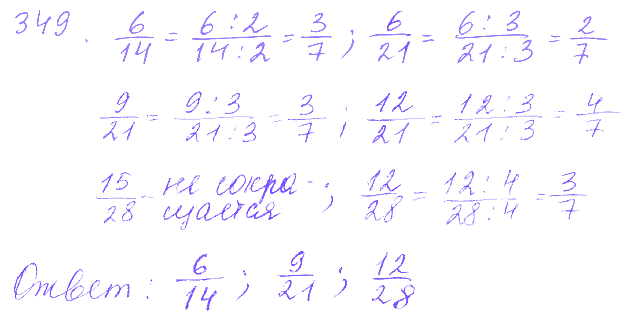 349. 6/14 = 6:2/14:2 = 3/7; 6/21 = 6:3/21:3 = 2/7
9/21 = 9:3/21:3 = 3/7; 12/21 = 12:3/21:3 = 4/7
15/28 - не сокра-щается; 12/28 = 12:4/28:4 = 3/7
Ответ: 6/14; 9/21; 12/28